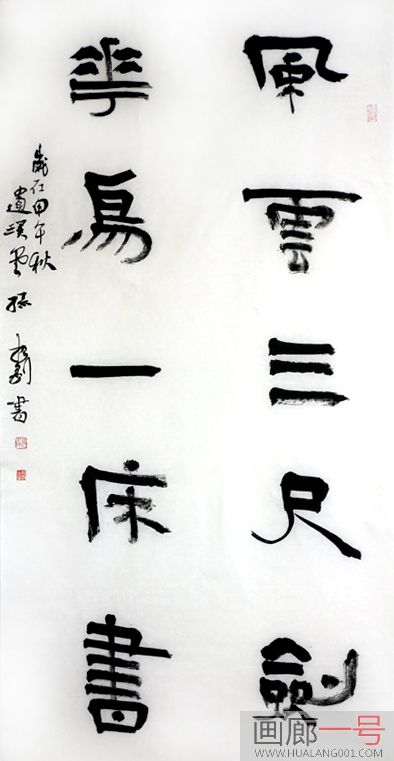 風雲三尺劍
華鳥一床書
歲在甲午秋
書
画廊一号
WWW.HUALANG001.COM